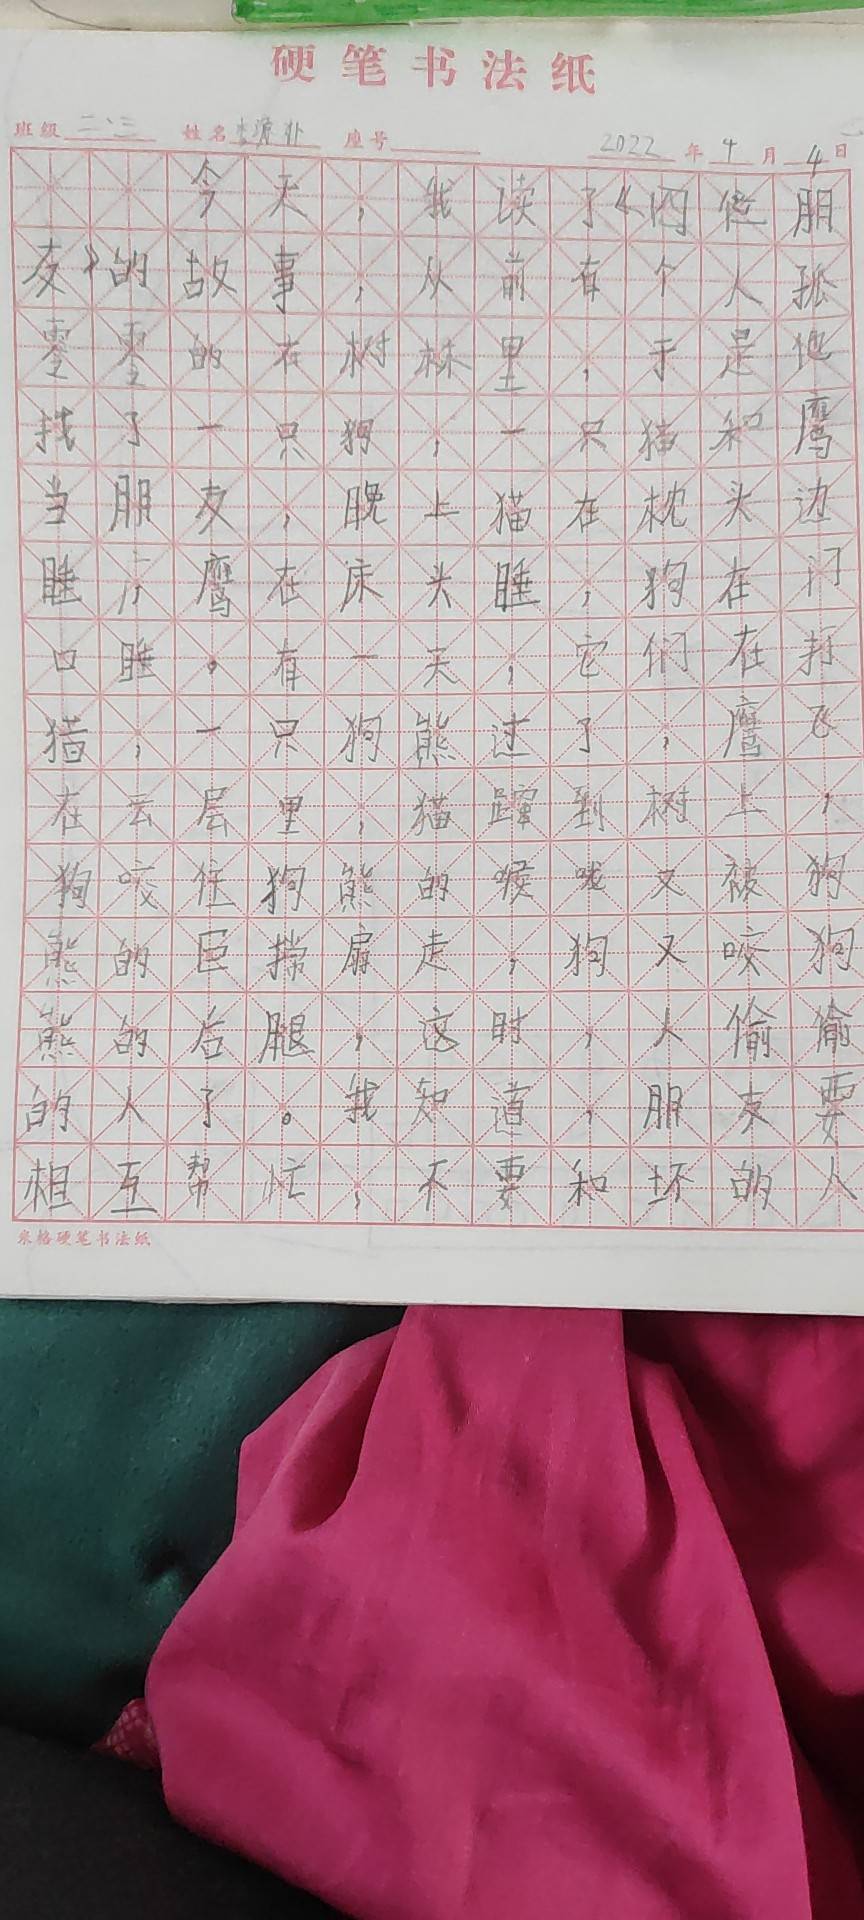 硬笔书法纸
班级 二、三 姓名 李源 座号 2022 年 4 月 4 日
今天，我读了《四位朋
友》的故事，从前有个人孤
零零的在树林里，于是他
找了一只狗，一只猫和鹰
当朋友，晚上猫在枕头边
睡，鹰在床头睡，狗在门
口睡。有一天，它们在打
猎，一只狗熊过了，鹰飞
在云层里，猫蹿到树上，
狗咬住狗熊的喉咙又被狗
熊的巨掌扇走，狗又咬狗
熊的后腿，这时，人偷偷
的人了。我知道，朋友要
相互帮忙，不要和坏的人
米格硬笔书法纸